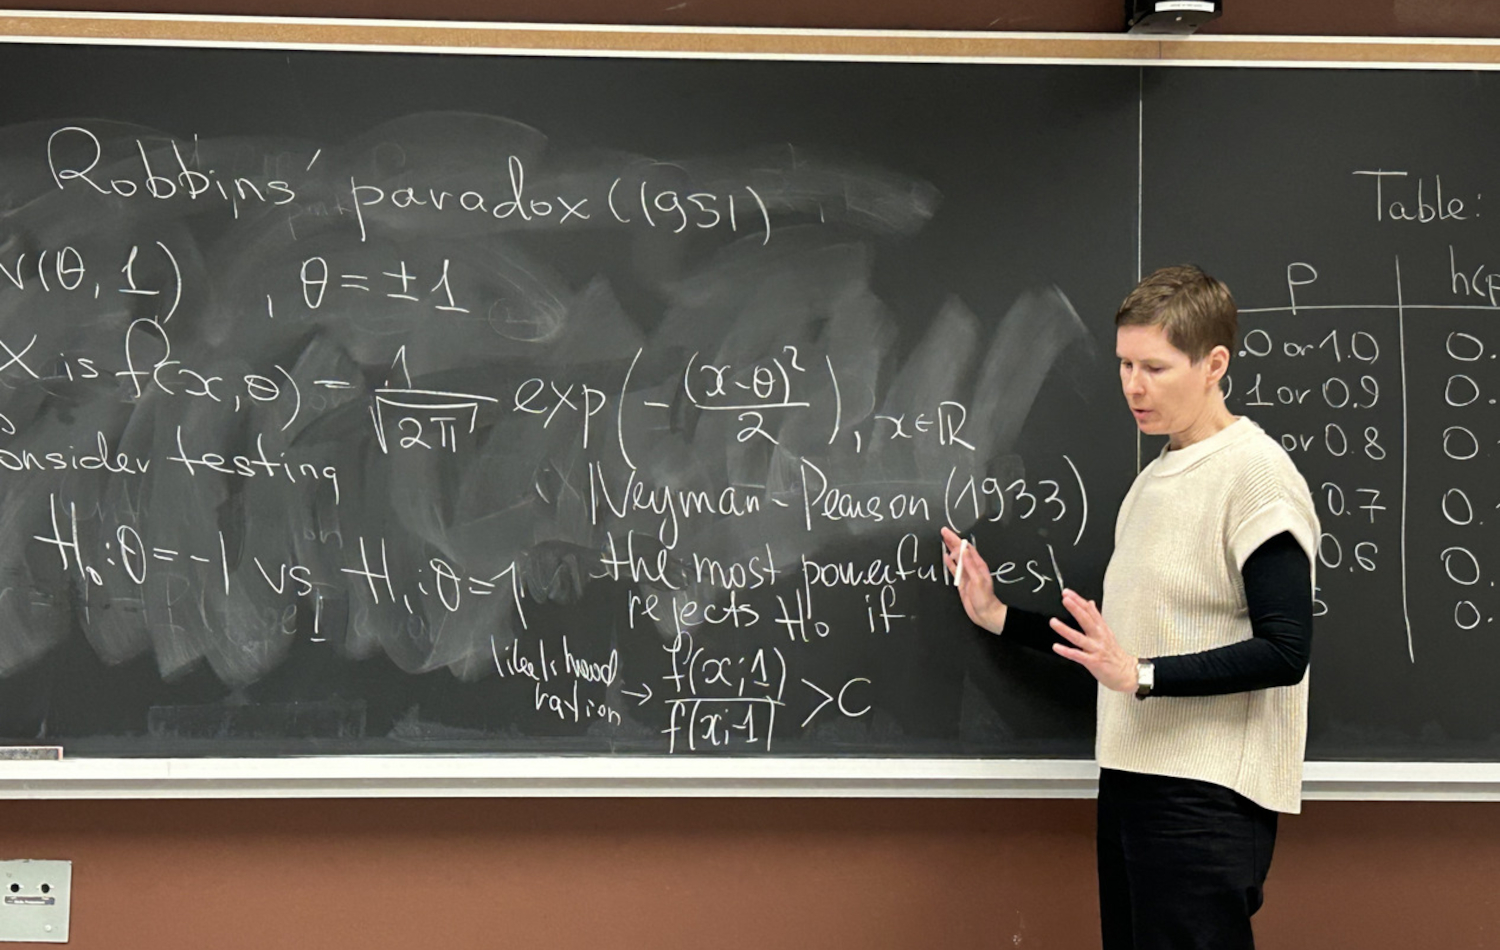 Robbins' paradox (1951)
N(θ, 1) , θ = ± 1
X is f(x, θ) = 1/√2π exp(-(x-θ)²/2), x ∈ ℝ
onsider testing
H₀: θ = -1 vs H₁: θ = 1
Neyman-Pearson (1933)
the most powerful test
rejects H₀ if
likelihood
ration → f(x;1)/f(x;-1) > C
Table:
p h(p
.0 or 1.0 0.
1 or 0.9 0.
or 0.8 0.
0.7 0.
0.6 0.
5 0.